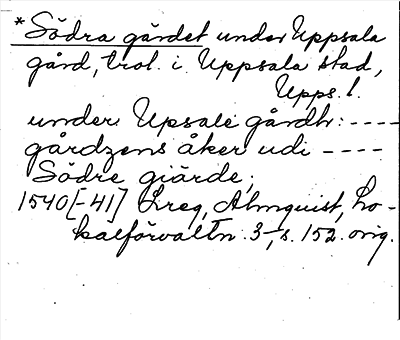 * Södra gärdet under Uppsala
gård, trol. i Uppsala stad,
Upps. l.
under Upsale gårdh: ----
gårdzens åker udi ----
Södre giärde;
1540[-41] Lreg, Almquist, Lo-
kalförvaltn. 3, s. 152. orig.